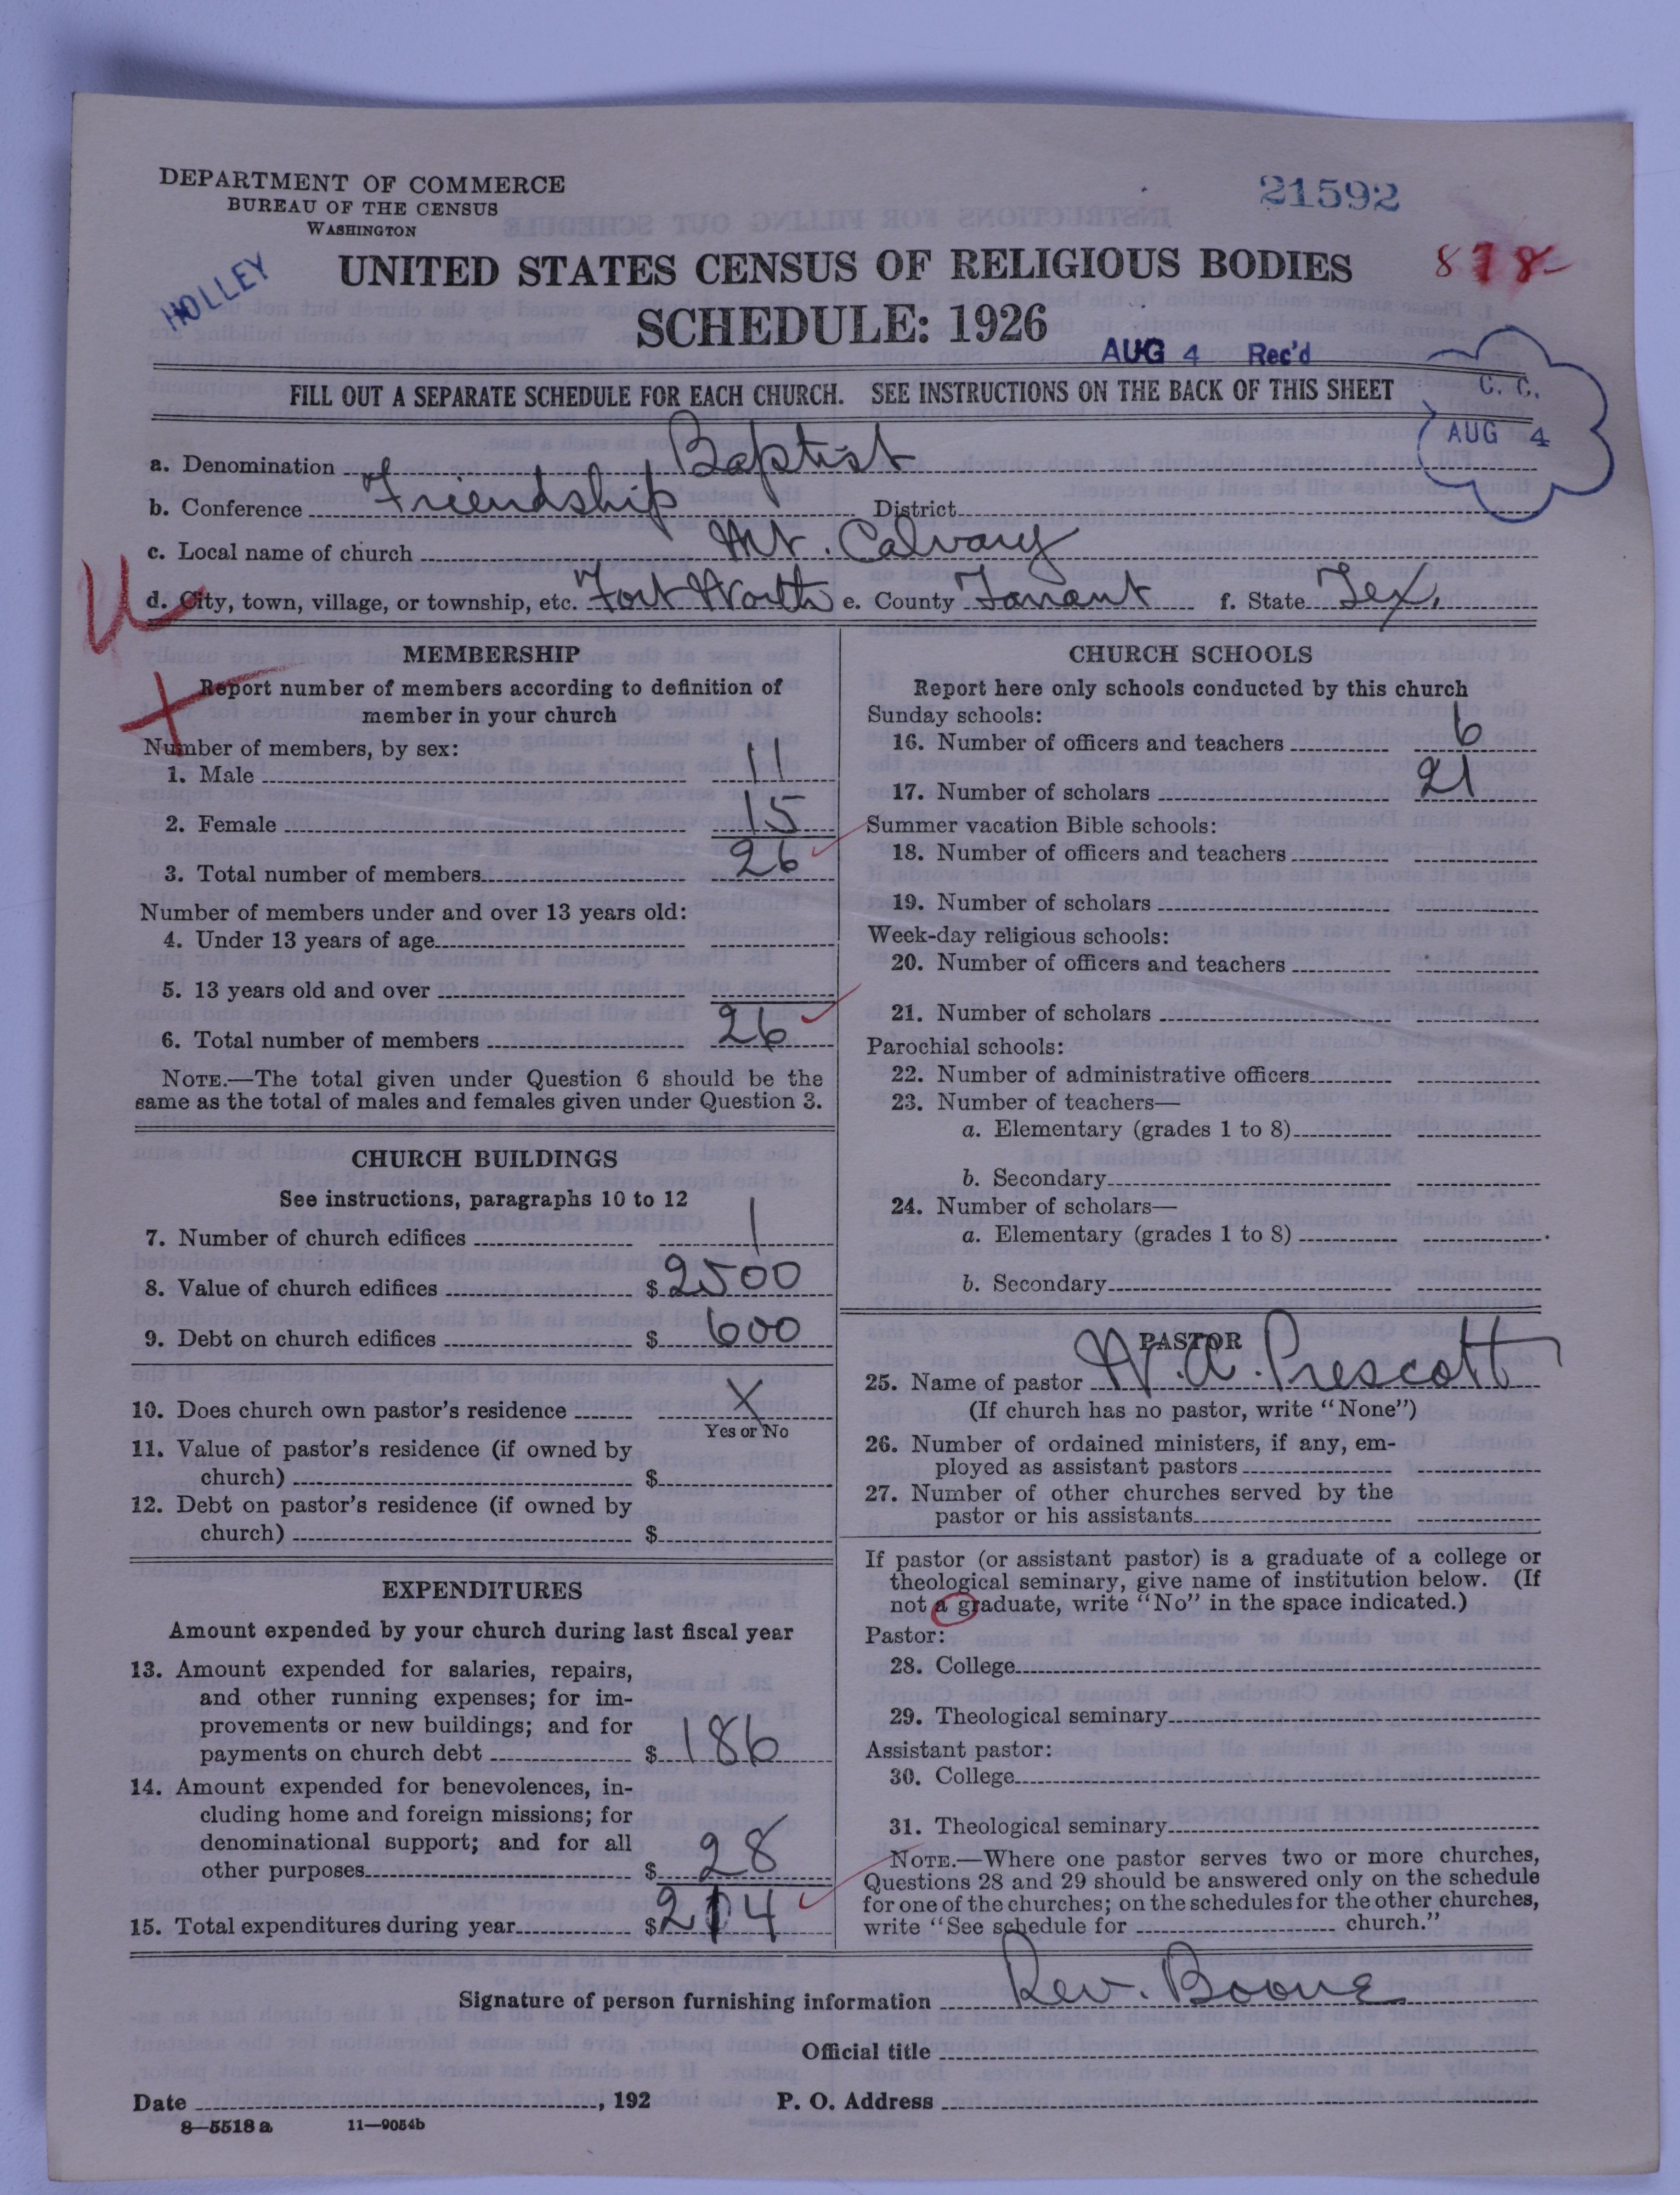 DEPARTMENT OF COMMERCE
BUREAU OF THE CENSUS
WASHINGTON
21592
HOLLEY
UNITED STATES CENSUS OF RELIGIOUS BODIES
878-
SCHEDULE: 1926
AUG 4 Rec'd
FILL OUT A SEPARATE SCHEDULE FOR EACH CHURCH. SEE INSTRUCTIONS ON THE BACK OF THIS SHEET
C. C.
AUG 4
a. Denomination Baptist
b. Conference Friendship District
c. Local name of church Mt. Calvary
d. City, town, village, or township, etc. Fort Worth e. County Tarrant f. State Tex.
MEMBERSHIP
Report number of members according to definition of
member in your church
Number of members, by sex:
1. Male 11
2. Female 15
3. Total number of members 26
Number of members under and over 13 years old:
4. Under 13 years of age
5. 13 years old and over
6. Total number of members 26
NOTE.—The total given under Question 6 should be the
same as the total of males and females given under Question 3.
CHURCH BUILDINGS
See instructions, paragraphs 10 to 12
7. Number of church edifices 1
8. Value of church edifices $ 2500
9. Debt on church edifices $ 600
10. Does church own pastor's residence X
Yes or No
11. Value of pastor's residence (if owned by
church) $
12. Debt on pastor's residence (if owned by
church) $
EXPENDITURES
Amount expended by your church during last fiscal year
13. Amount expended for salaries, repairs,
and other running expenses; for im-
provements or new buildings; and for
payments on church debt $ 186
14. Amount expended for benevolences, in-
cluding home and foreign missions; for
denominational support; and for all
other purposes $ 28
15. Total expenditures during year $ 214
CHURCH SCHOOLS
Report here only schools conducted by this church
Sunday schools:
16. Number of officers and teachers 6
17. Number of scholars 21
Summer vacation Bible schools:
18. Number of officers and teachers
19. Number of scholars
Week-day religious schools:
20. Number of officers and teachers
21. Number of scholars
Parochial schools:
22. Number of administrative officers
23. Number of teachers—
a. Elementary (grades 1 to 8)
b. Secondary
24. Number of scholars—
a. Elementary (grades 1 to 8)
b. Secondary
PASTOR
25. Name of pastor W. A. Prescott
(If church has no pastor, write "None")
26. Number of ordained ministers, if any, em-
ployed as assistant pastors
27. Number of other churches served by the
pastor or his assistants
If pastor (or assistant pastor) is a graduate of a college or
theological seminary, give name of institution below. (If
not a graduate, write "No" in the space indicated.)
Pastor:
28. College
29. Theological seminary
Assistant pastor:
30. College
31. Theological seminary
NOTE.—Where one pastor serves two or more churches,
Questions 28 and 29 should be answered only on the schedule
for one of the churches; on the schedules for the other churches,
write "See schedule for church."
Signature of person furnishing information Rev. Boone
Official title
Date , 192 P. O. Address
8—5518 a 11—9054b